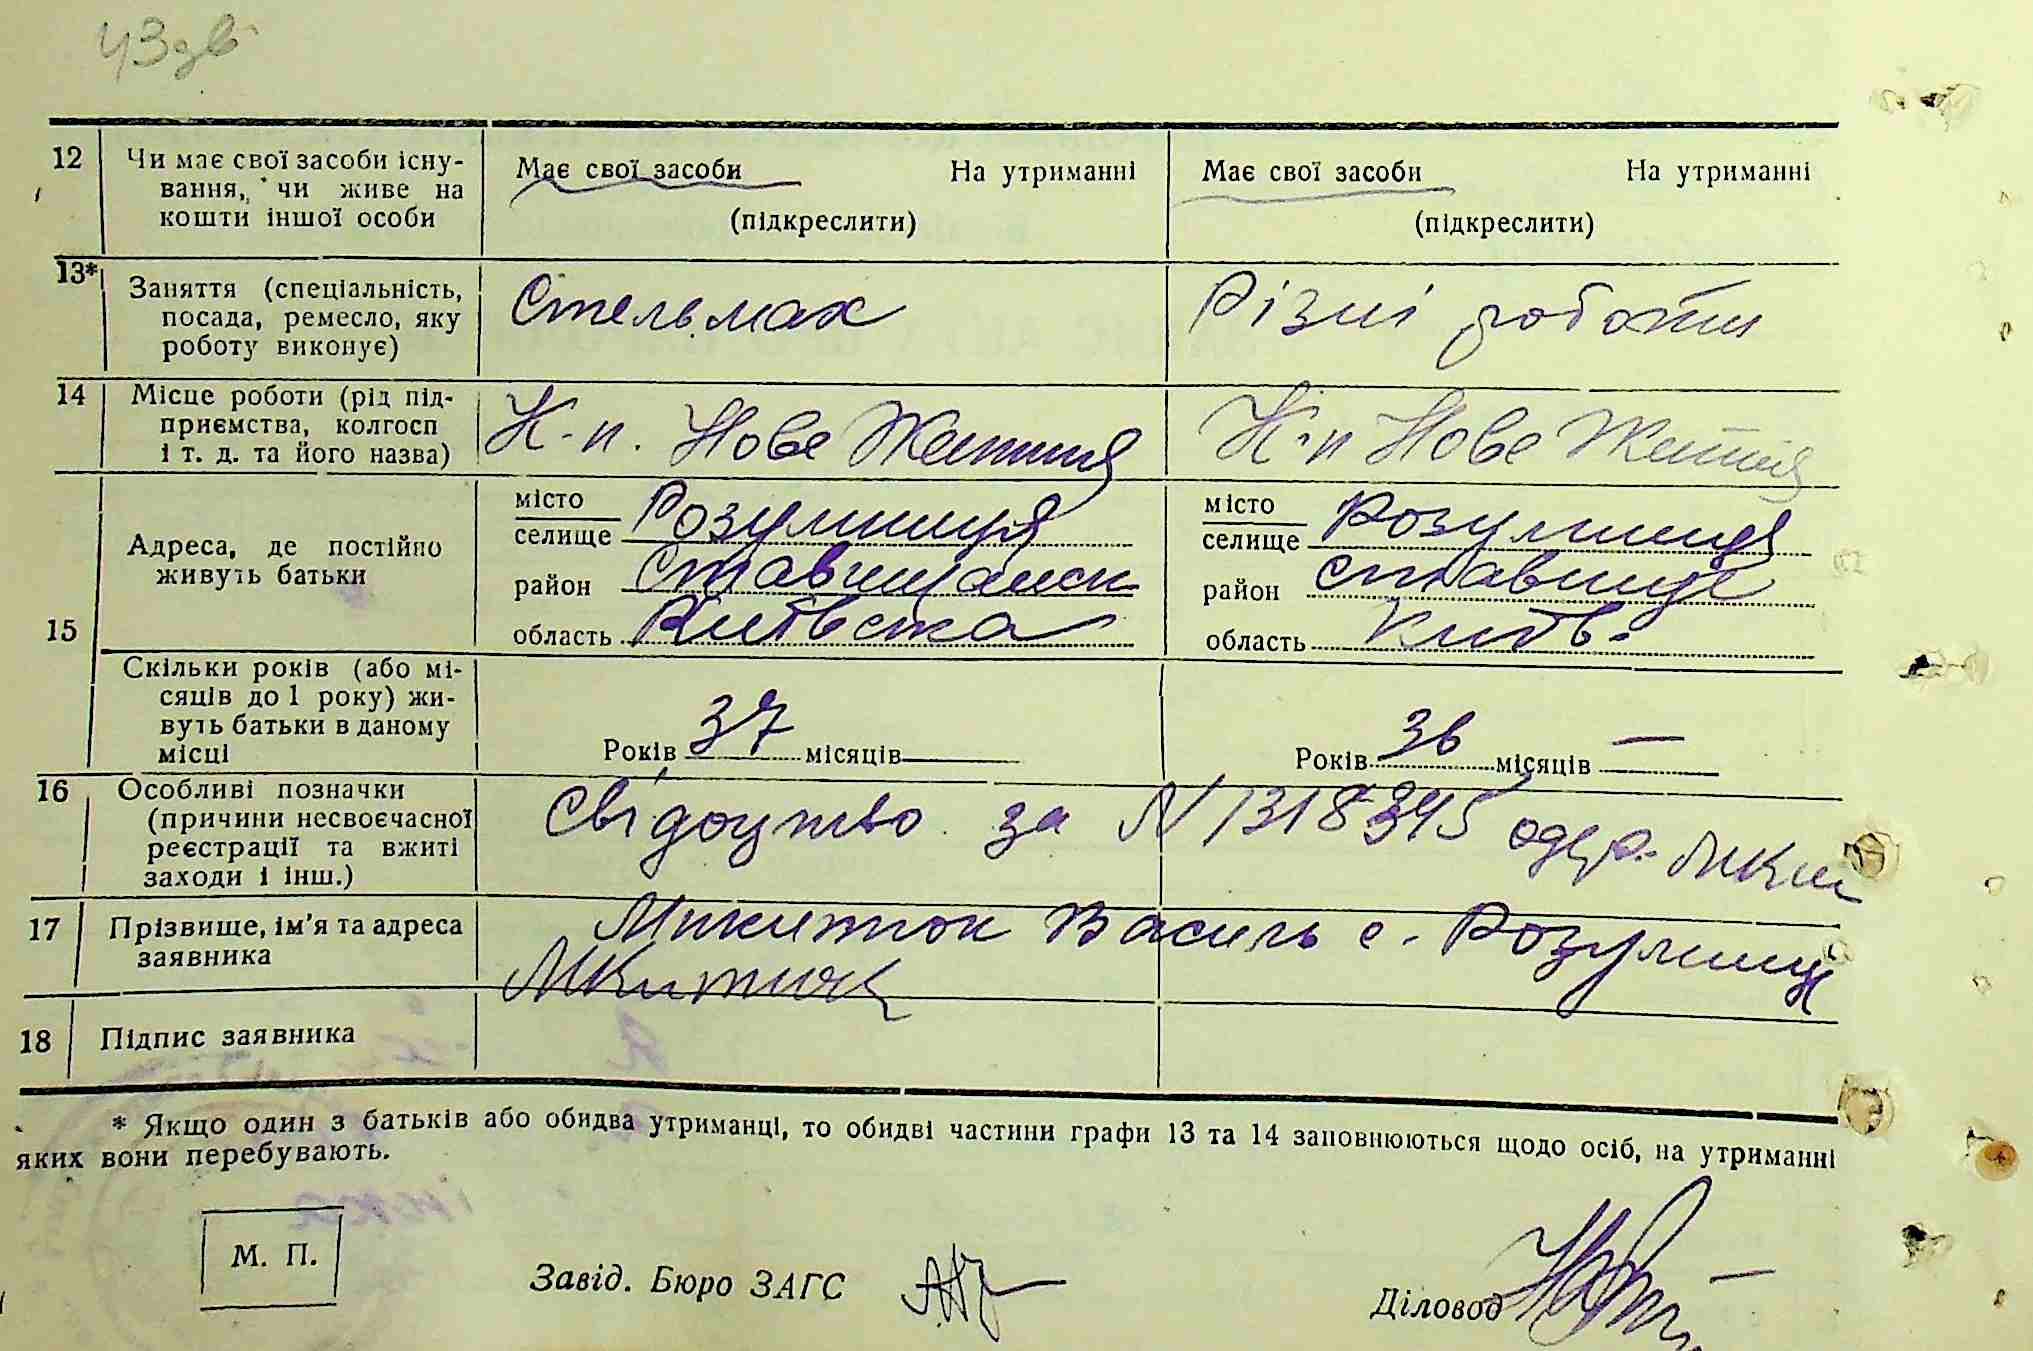 43 дв.
12 Чи має свої засоби існу- Має свої засоби На утриманні Має свої засоби На утриманні
вання, чи живе на
кошти іншої особи (підкреслити) (підкреслити)
13* Заняття (спеціальність, Стельмах Різні роботи
посада, ремесло, яку
роботу виконує)
14 Місце роботи (рід під- К-п. Нове Життя К-п Нове Життя
приємства, колгосп
і т. д. та його назва)
15 Адреса, де постійно живуть батьки
місто селище Розумниця місто селище Розумниця
район Ставищанськ район Ставище
область Київська область Київ.
Скільки років (або мі-
сяців до 1 року) жи-
вуть батьки в даному
місці Років 37 місяців Років 36 місяців —
16 Особливі позначки Свідоцтво за N 1318395 одер.
(причини несвоєчасної
реєстрації та вжиті
заходи і інш.)
17 Прізвище, ім'я та адреса Микитюк Василь с. Розумниця
заявника
18 Підпис заявника
* Якщо один з батьків або обидва утриманці, то обидві частини графи 13 та 14 заповнюються щодо осіб, на утриманні
яких вони перебувають.
М. П.
Завід. Бюро ЗАГС Діловод